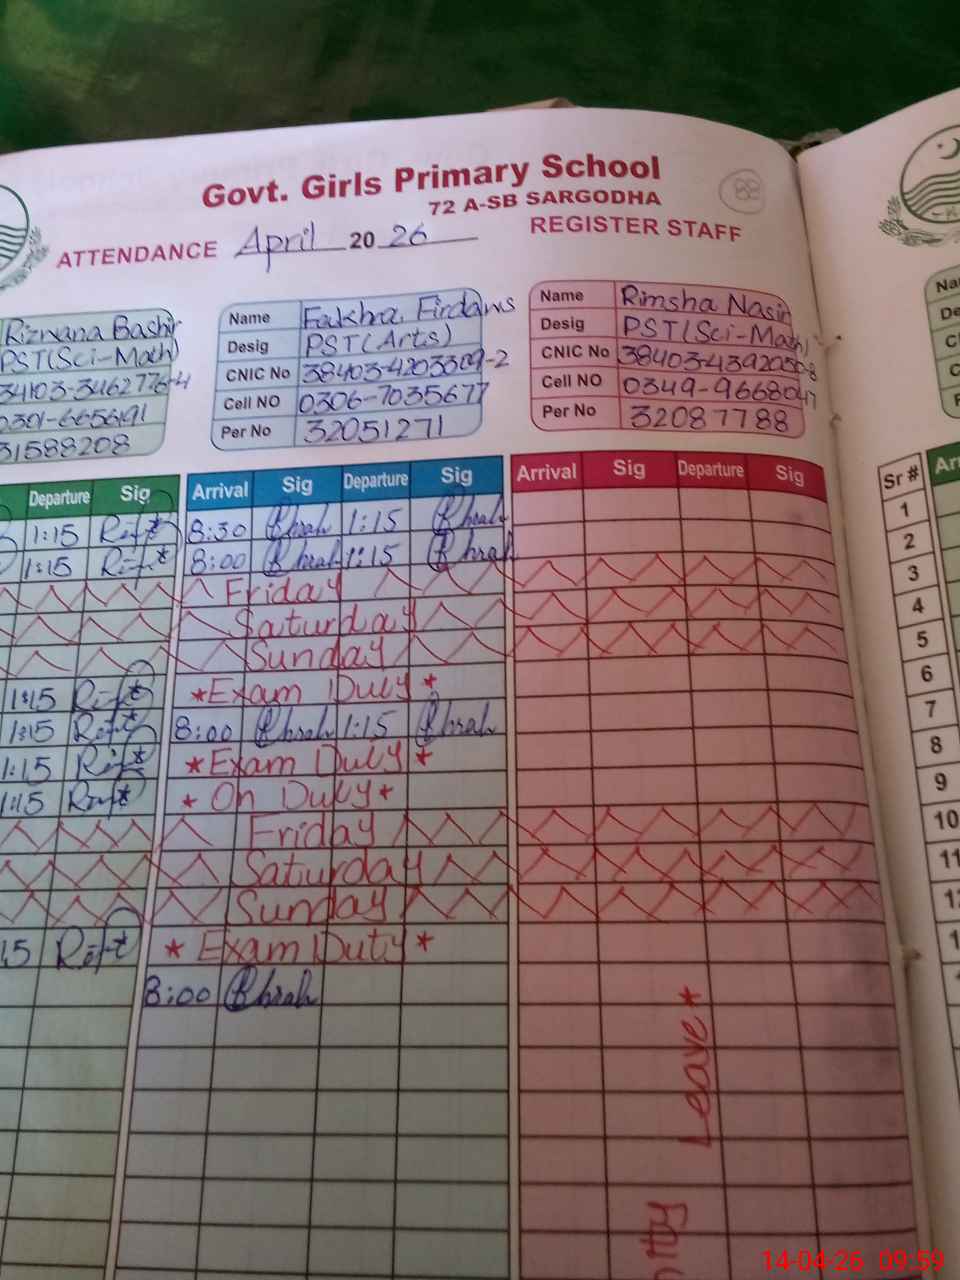 Govt. Girls Primary School
72 A-SB SARGODHA
ATTENDANCE April 2026 REGISTER STAFF
Rizwana Bashir
PST(Sci-Math)
34103-3462776-4
0301-6656191
31588208
Name Fakhra Firdaws
Desig PST(Arts)
CNIC No 38403-4203309-2
Cell NO 0306-7035677
Per No 32051271
Name Rimsha Nasir
Desig PST(Sci-Math)
CNIC No
Cell NO 0349-9668047
Per No 32087788
Departure Sig Arrival Sig Departure Sig Arrival Sig Departure Sig Sr #
1:15 8:30 1:15 1
1:15 8:00 1:15 2
Friday 3
Saturday 4
Sunday 5
1:15 *Exam Duty* 6
1:15 8:00 1:15 7
1:15 *Exam Duty* 8
1:15 * On Duty* 9
Friday 10
Saturday 11
Sunday
* Exam Duty*
8:00
Leave *
14-04-26 09:59